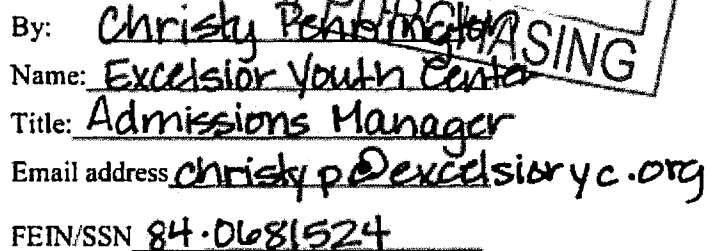 By: Christy Pennington
PURCHASING
Name: Excelsior Youth Center
Title: Admissions Manager
Email address christyp@excelsioryc.org
FEIN/SSN 84-0681524